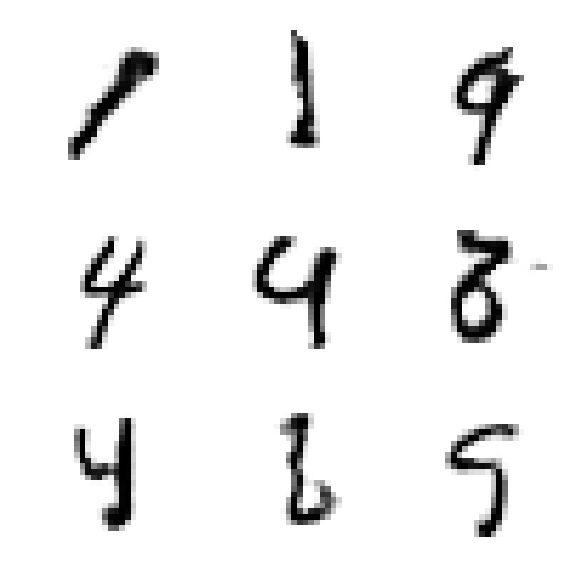 1 1 9
4 4 8
4 6 5